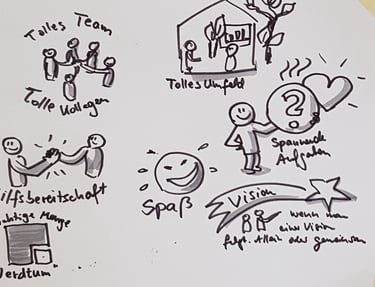 Tolles Team
Tolle Kollegen
Tolles Umfeld
ilfsbereitschaft
Spaß
2
Spannende
Aufgaben
Vision
wenn man
eine Vision
folgt. Allein oder gemeinsam
htige Menge